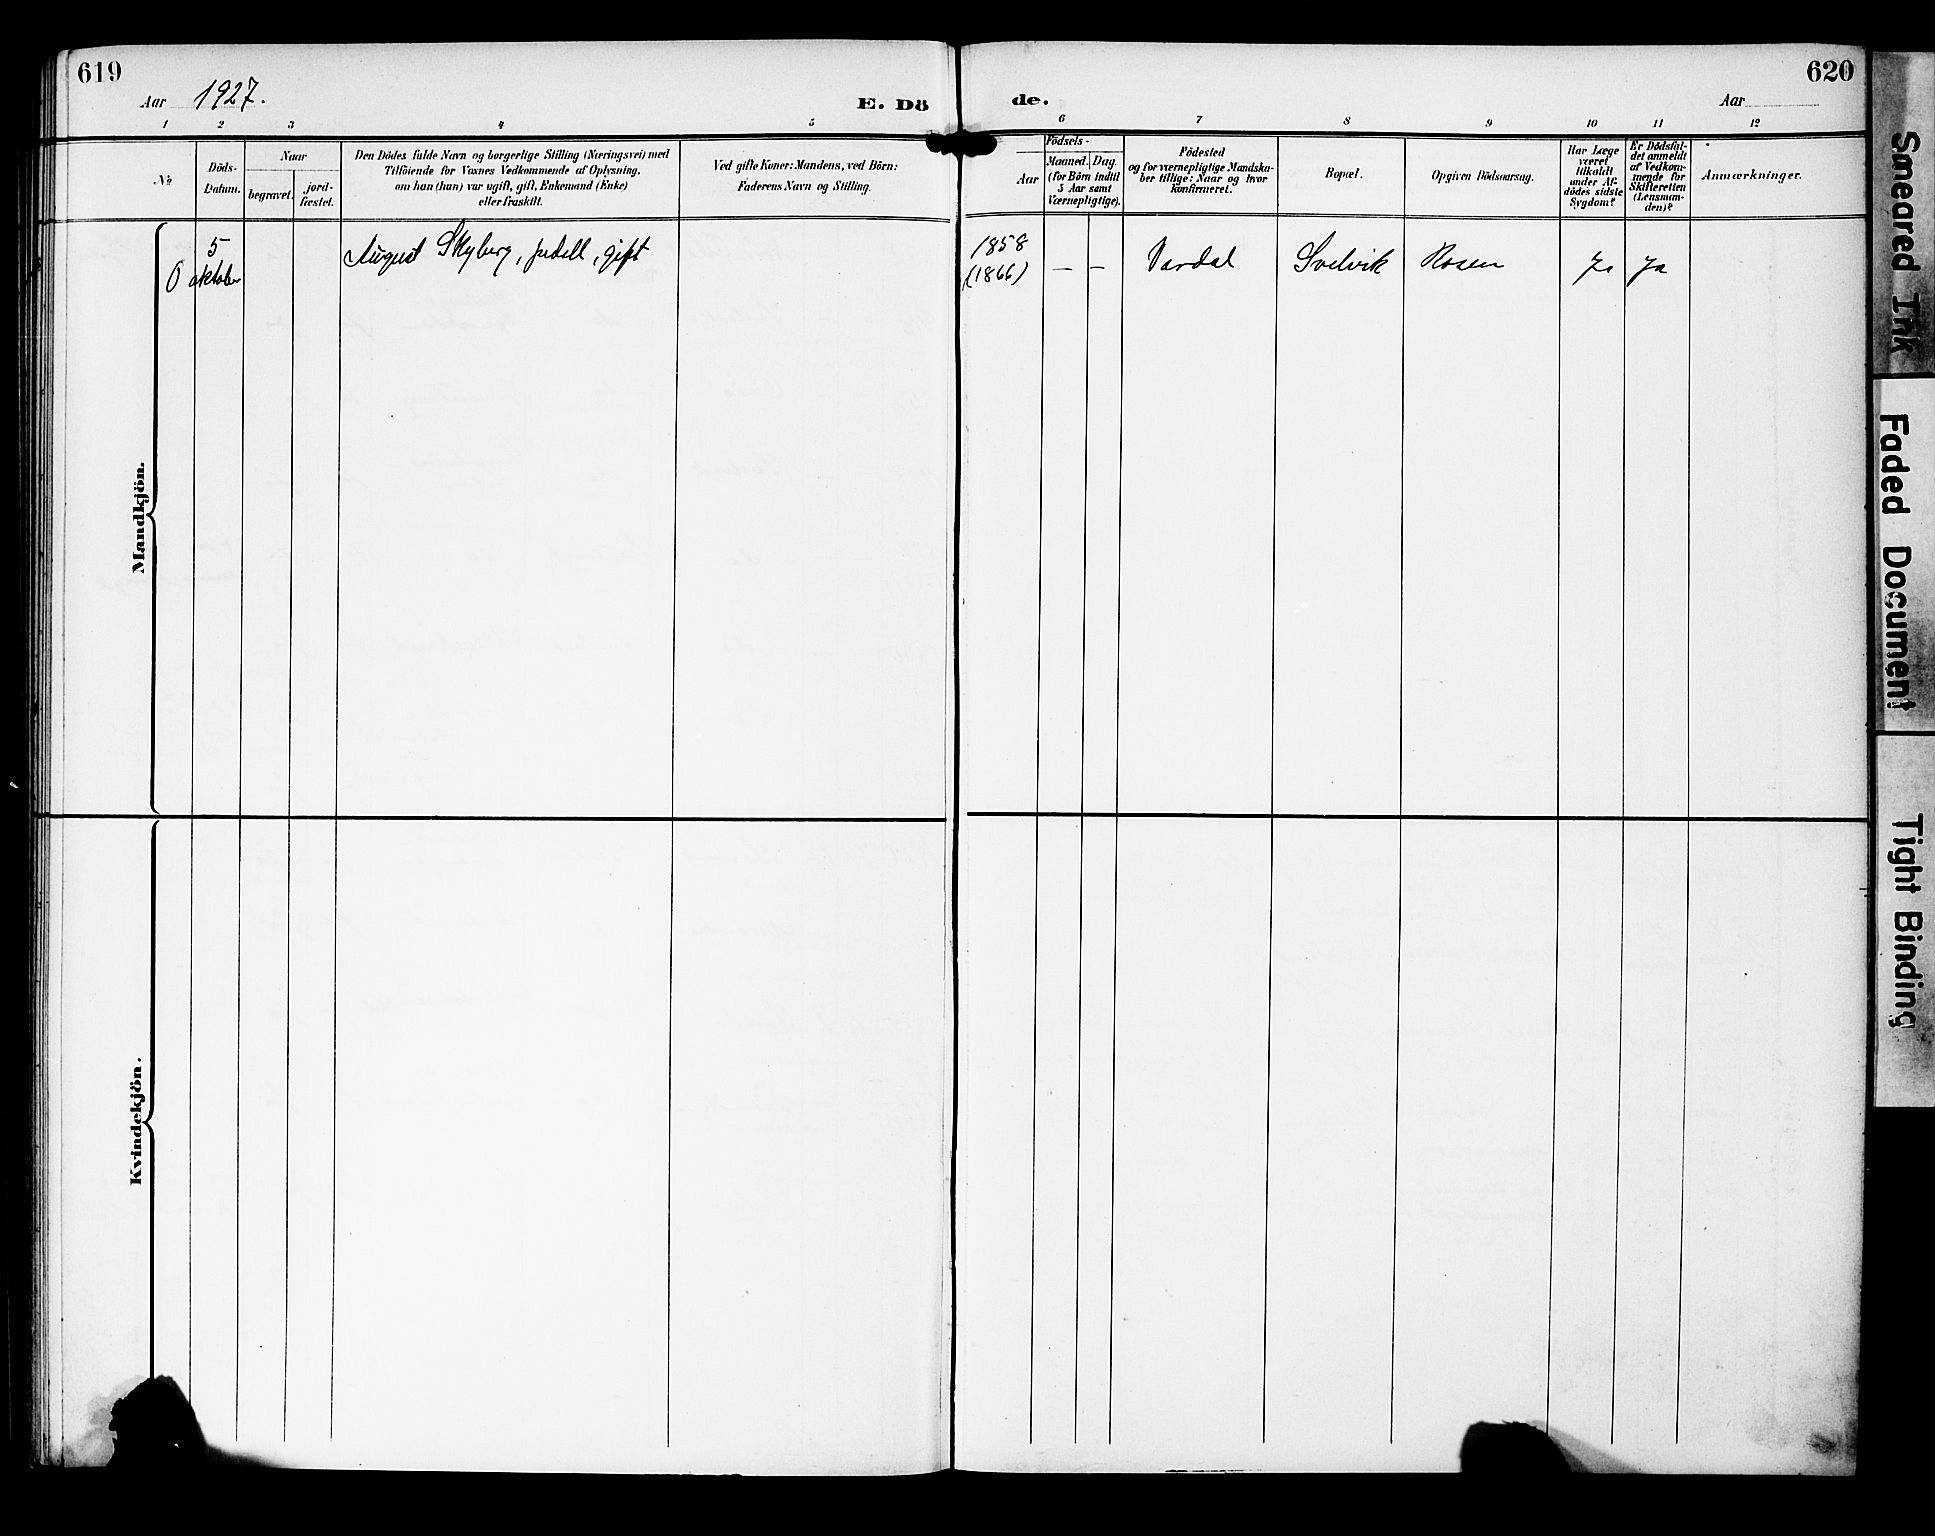 619
Aar 1927.
E. Dö
de.
620
Aar
1 2 3 4 5
6 7 8 9 10 11 12
No
Döds-
Datum.
Naar
begravet.
jord-
fæstet.
Den Dödes fulde Navn og borgerlige Stilling (Næringsvei) med
Tilföiende for Voxnes Vedkommende af Oplysning,
om han (hun) var ugift, gift, Enkemand (Enke)
eller fraskilt.
Ved gifte Koner: Mandens, ved Börn:
Faderens Navn og Stilling.
Födsels-
Aar
Maaned.
Dag.
(for Börn indtil
5 Aar samt
Værnepligtige).
Födested
og for værnepligtige Mandska-
ber tillige: Naar og hvor
konfirmeret.
Bopæl.
Opgiven Dödsaarsag.
Har Læge
været
tilkaldt
under Af-
dödes sidste
Sygdom?
Er Dödsfal-
det anmeldt
af Vedkom-
mende for
Skifteretten
(Lensman-
den)?
Anmærkninger.
Mandkjön.
0
5
oktober
August Skyberg, pedell, gift
1858
(1866)
– –
Vardal
Svelvik
Rosen
Ja
Ja
Kvindekjön.
Smeared Ink
Faded Document
Tight Binding